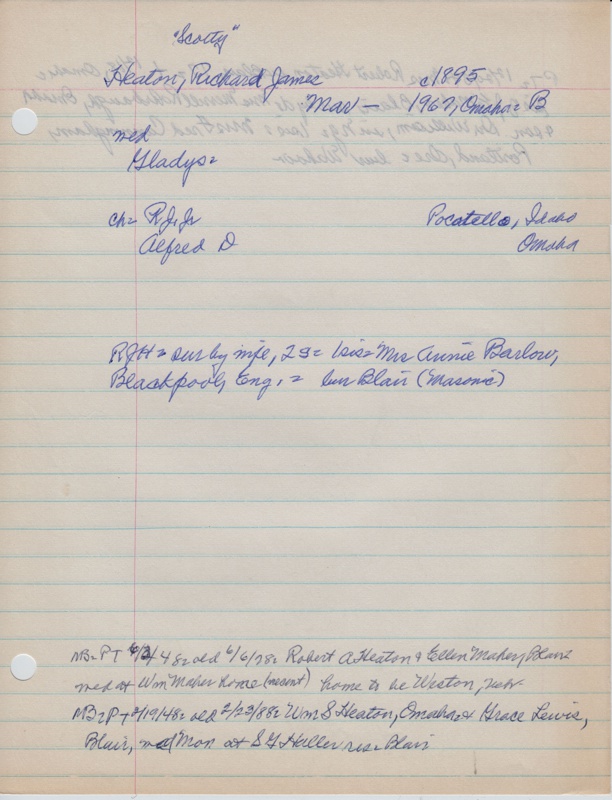 "Scotty"
Heaton, Richard James c1895
Mar — 1967, Omaha = B
wed
Gladys =
ch = R.J. Jr Pocatello, Idaho
Alfred D Omaha
RJH = sur by wife, 2 s = 1 sis = Mrs Annie Barlow,
Blackpool, Eng. = bur Blair (Masonic)
MB = PT 6/3/48 = old 6/6/78 = Robert A Heaton & Ellen Maher, Blair =
wed at Wm Maher home (recent) home to be Weston,
MB = PT 2/19/48 = old 2/23/88 = Wm S Heaton, Omaha = & Grace Lewis,
Blair, wed Mon at S F Haller res = Blair